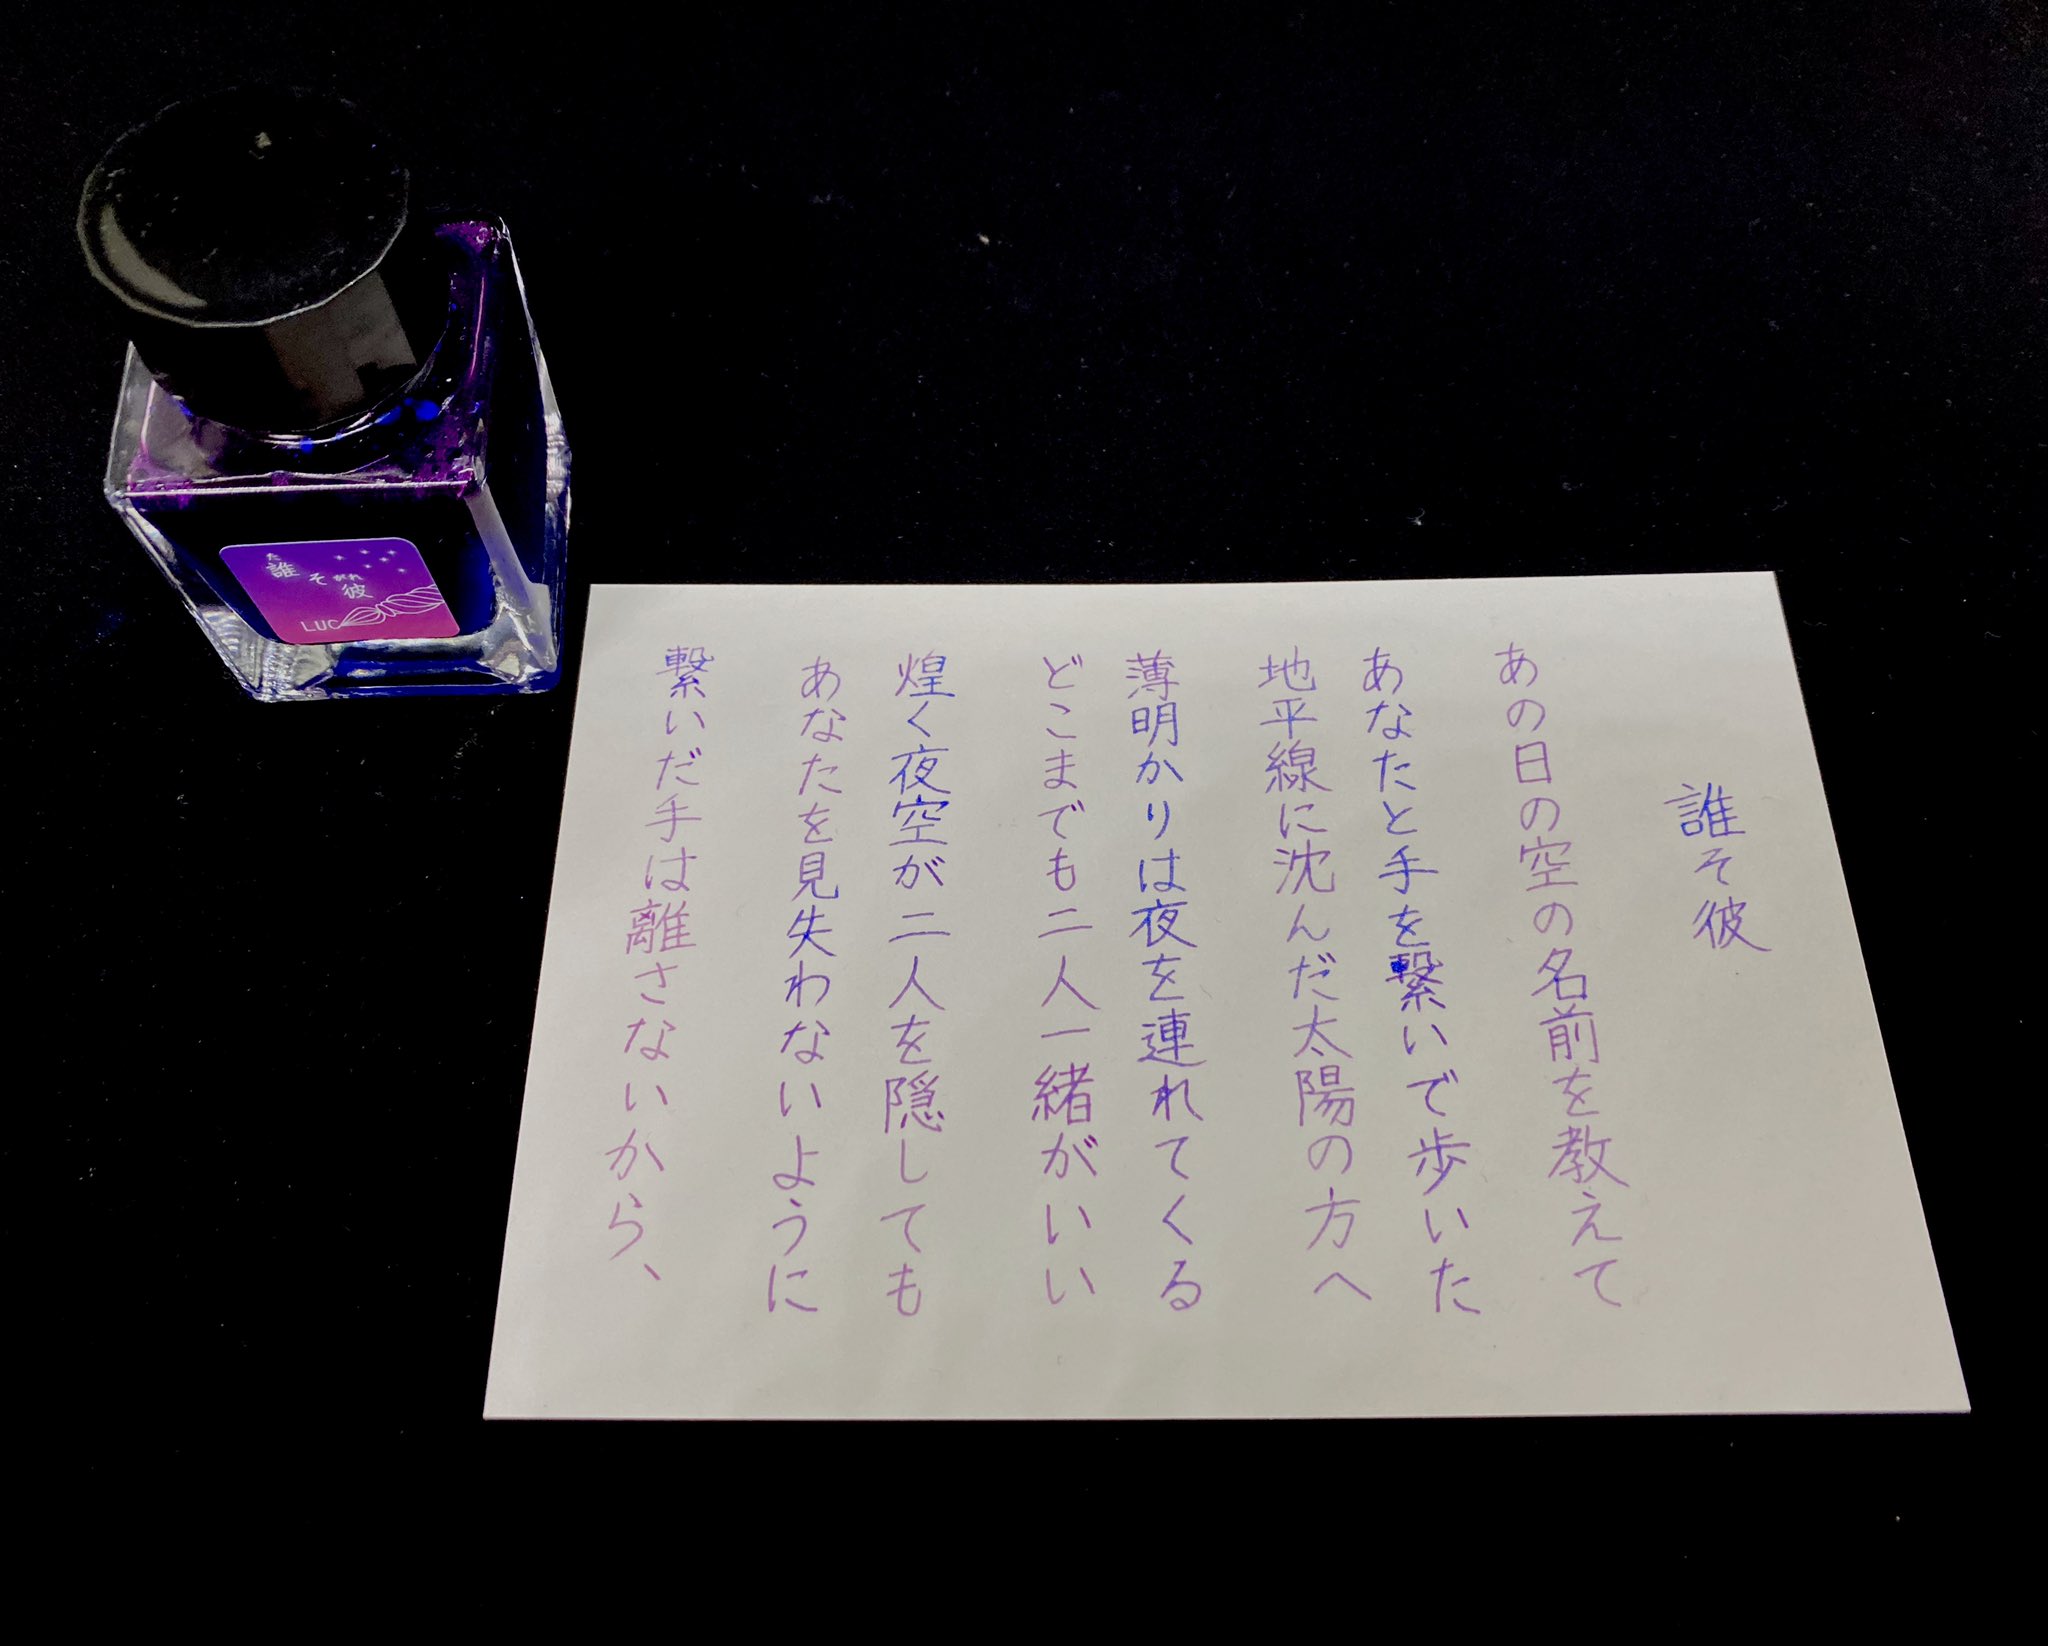 た
誰
そ
がれ
彼
LUC
誰そ彼
あの日の空の名前を教えて
あなたと手を繋いで歩いた
地平線に沈んだ太陽の方へ
薄明かりは夜を連れてくる
どこまでも二人一緒がいい
煌く夜空が二人を隠しても
あなたを見失わないように
繋いだ手は離さないから、